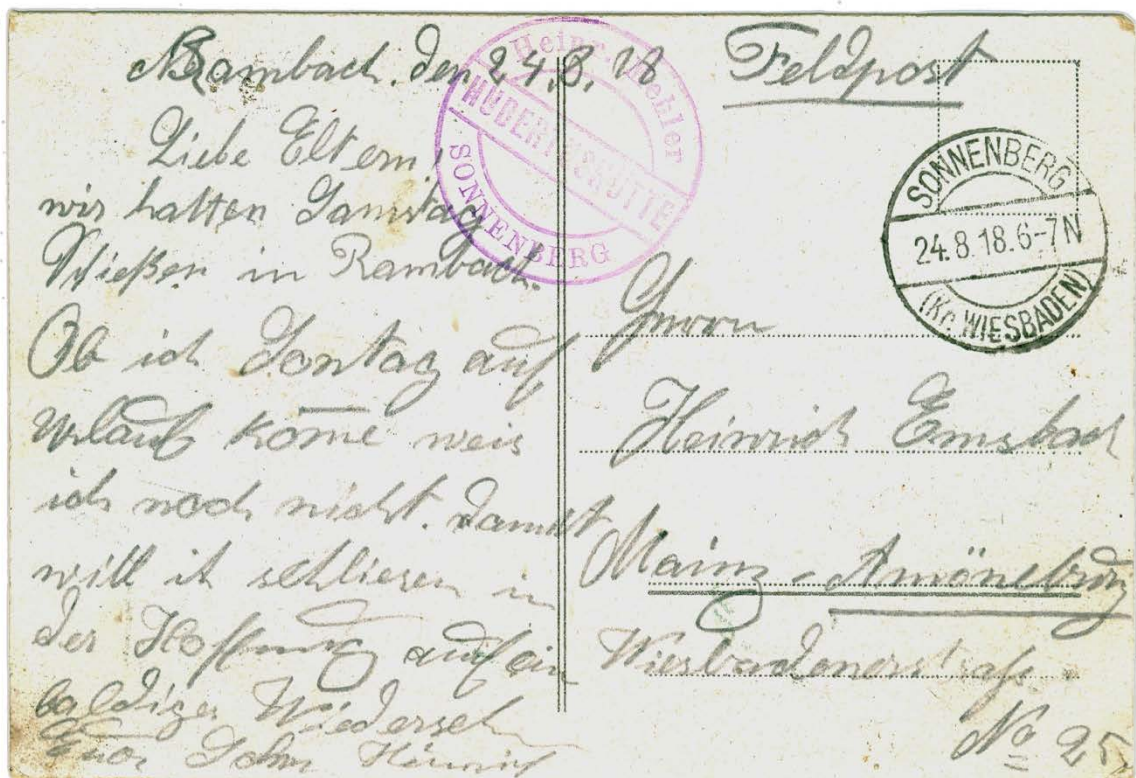 Rambach. den 24.8.18
Liebe Eltern,
wir hatten Samstag
Schießen in Rambach.
Ob ich Sontag auf
Urlaub kom̄e weis
ich noch nicht. Damit
will ich schliesen in
der Hoffnung auf ein
baldiges Wiedersehn
Euer Sohn Heinrich
Heinr.
HUBERTUSHÜTTE
SONNENBERG
Feldpost
SONNENBERG
24.8.18.6-7N
(Kr. WIESBADEN)
Herrn
Heinrich Emsbach
Mainz - Amöneburg
Wiesbadenerstraße
No 25